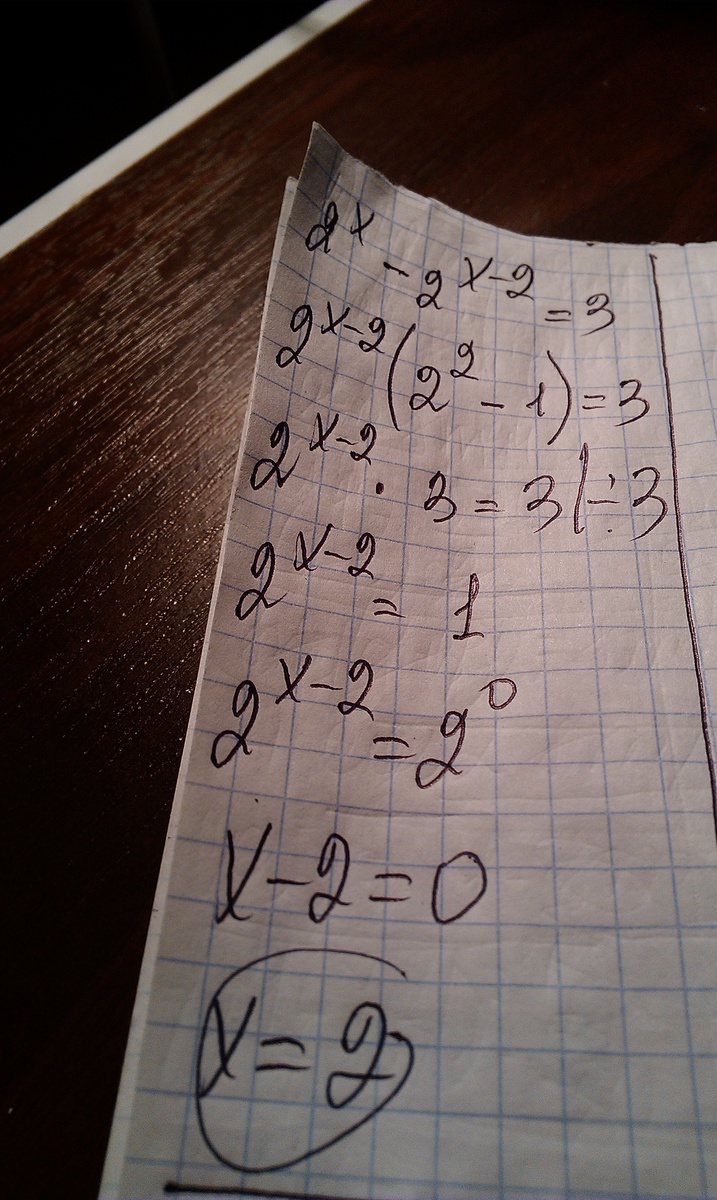 2^x - 2^{x-2} = 3
2^{x-2}(2^2 - 1) = 3
2^{x-2} · 3 = 3 | ÷ 3
2^{x-2} = 1
2^{x-2} = 2^0
x - 2 = 0
x = 2